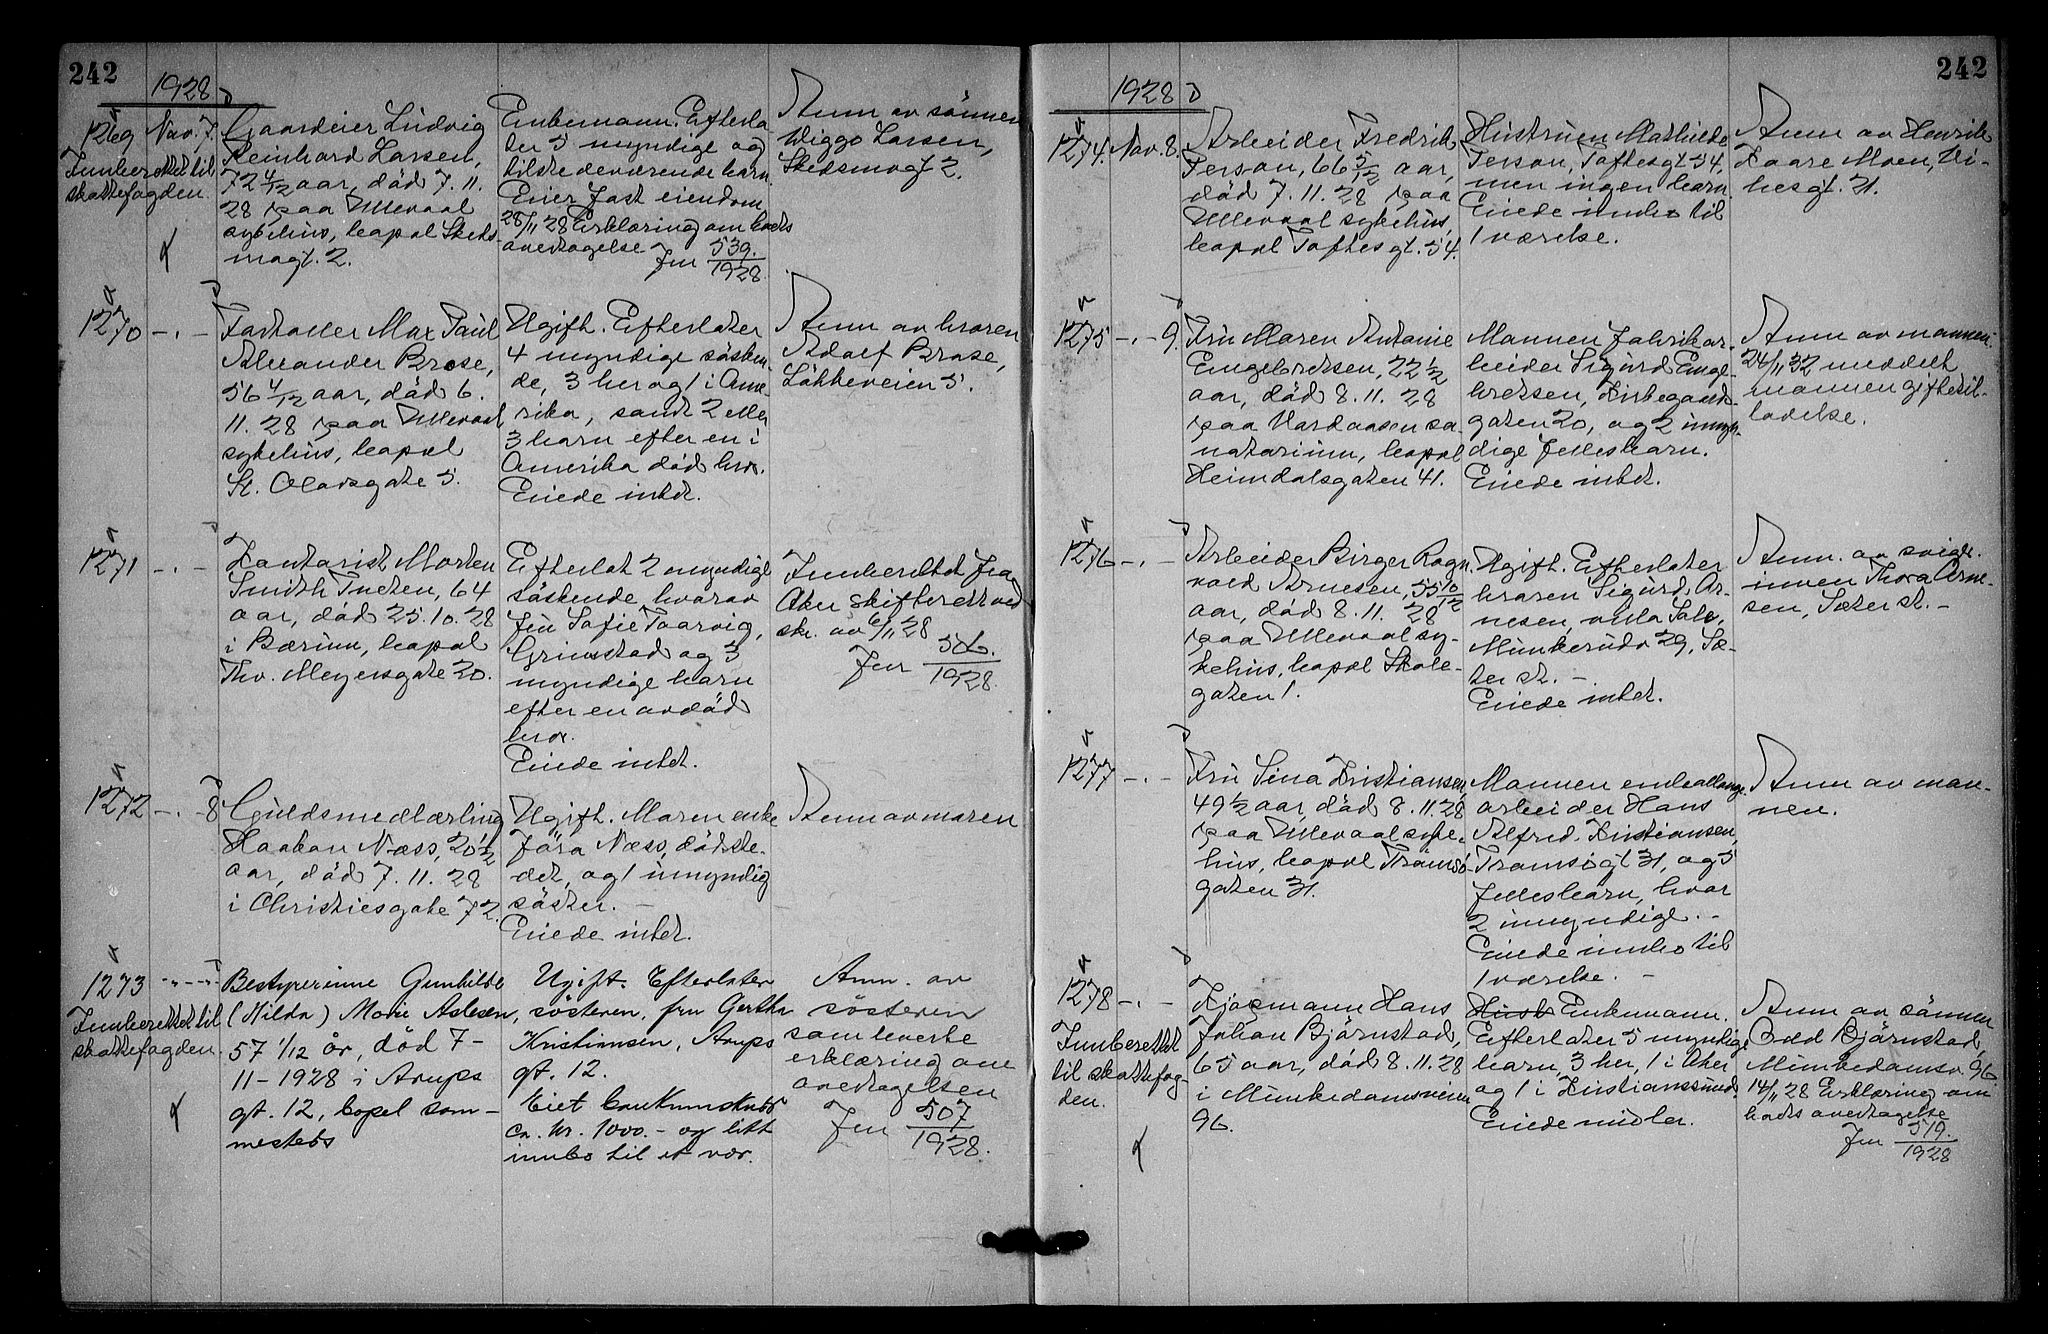 242
1928
1269 Nov. 7.
Innberettet til
skattefogden.
Gaardeier Ludvig
Reinhard Larsen,
72 4/12 aar, død 7. 11.
28 paa Ullevaal
sykehus, bopæl Skeds-
mogt. 2.
Enkemann. Efterla-
ter 5 myndige og
tilstedeværende barn.
Eier fast eiendom
28/11 28 Erklæring om boets
overtagelse
Jnr 539.
1928.
Anm av sönnen
Wiggo Larsen,
Skedsmogt 2.
1270 -.-
Fashaller Max Paul
Alexander Brose,
56 4/12 aar, död 6.
11. 28 paa Ullevaal
sykehus, bopæl
St. Olavsgate 5.
Ugift. Efterlater
4 myndige sösken-
de, 3 her og 1 i Ame-
rika, samt 2 eller
3 barn efter en i
Amerika död bror.
Eiede intet.
Anm av broren
Adolf Brose,
Lökkeveien 5.
1271 -.-
Kontorist Morten
Smith Tveten, 64
aar, död 25. 10. 28
i Bærum, bopæl
Thv. Meyersgate 20.
Efterlot 2 myndige
söskende hvorav
fru Sofie Taarvig,
Grimstad og 3
myndige barn
efter en avdöd
bror.
Eiede intet.
Innberettet fra
Aker skifterett ved
skr. av 6/11 28
Jnr 506.
1928.
1272 -.- 8
Guldsmedlærling
Haakon Næss, 20 1/2
aar, död 7. 11. 28
i Christiesgate 72.
Ugift. Moren enke
Jöra Næss, dödste-
det, og 1 umyndig
söster. -
Eiede intet.
Anm av moren
1273 -"-"-
Innberettet til
skattefogden.
Bestyrerinne Gunhilde
(Hilda) Marie Aslesen,
57 1/12 år, död 7-
11-1928 i Arups
gt. 12, bopel som-
mesteds
Ugift. Efterlater
søsteren, fru Gertha
Kristiansen, Arups
gt. 12.
Eiet bankinnskudd
ca. kr. 1000.- og litt
innbo til et vær.
Anm. av
søsteren
som leverte
erklæring om
overtagelsen
Jnr 507
1928.
242
1928
1274. Nov. 8.
Arbeider Fredrik
Person, 66 5/12 aar,
död 7. 11. 28 paa
Ullevaal sykehus,
bopæl Toftesgt. 54.
Hustruen Mathilde
Person, Toftesgt 54,
men ingen barn.
Eiede innbo til
1 værelse.
Anm av Henrik
Kaare Moen, Vi-
besgt. 21.
1275 -.- 9.
Fru Maren Antonie
Engebretsen, 22 1/2
aar, död 8. 11. 28
paa Vardaasen sa-
natorium, bopæl
Heimdalsgaten 41.
Mannen fabrikar-
beider Sigurd Enge-
bretsen, Kirkegaards-
gaten 20, og 2 umyn-
dige fellesbarn.
Eiede intet.
Anm av mannen.
24/11 32 meddelt
mannen giftetil-
ladelse.
1276 -.-
Arbeider Birger Ragn-
vald Arnesen, 55 10/12
aar, död 8. 11. 28
paa Ullevaal sy-
kehus, bopæl Skole-
gaten 1.
Ugift. Efterlater
broren Sigurd Ar-
nesen, villa Solv,
Munkerudv 29, Sæ-
ter st. -
Eiede intet.
Anm. av sviger-
innen Thora Arne-
sen, Sæter st. -
1277 -.-
Fru Sina Kristiansen,
49 1/2 aar, död 8. 11. 28
paa Ullevaal syke-
hus, bopæl Tromsö-
gaten 31.
Mannen emballage
arbeider Hans
Alfred Kristiansen,
Tromsøgt 31, og 5
fellesbarn, hvor
2 umyndige. -
Eiede innbo til
1 værelse. -
Anm av man-
nen.
1278 -.-
Innberettet
til skattefog-
den.
Kjøpmann Hans
Johan Bjørnstad,
65 aar, död 8. 11. 28
i Munkedamsveien
96.
Hust Enkemann.
Efterlater 5 myndige
barn, 3 her, 1 i Aker
og 1 i Kristianssund.
Eiede midler.
Anm av sönnen
Odd Bjørnstad,
Munkedamsv. 96.
14/11 28 Erklæring om
boets overtagelse
Jnr 519.
1928